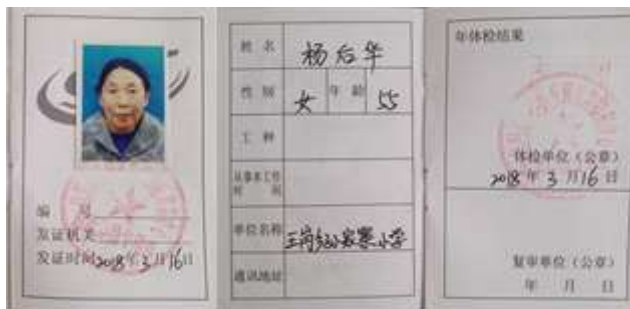 编 号
发证机关
发证时间 2018年3月16日
姓 名 杨后华
性 别 女 年 龄 55
工 种
从事本工作
时 间
单位名称 小学
通讯地址
年体检结果
体检单位（公章）
2018年3月16日
复审单位（公章）
年 月 日